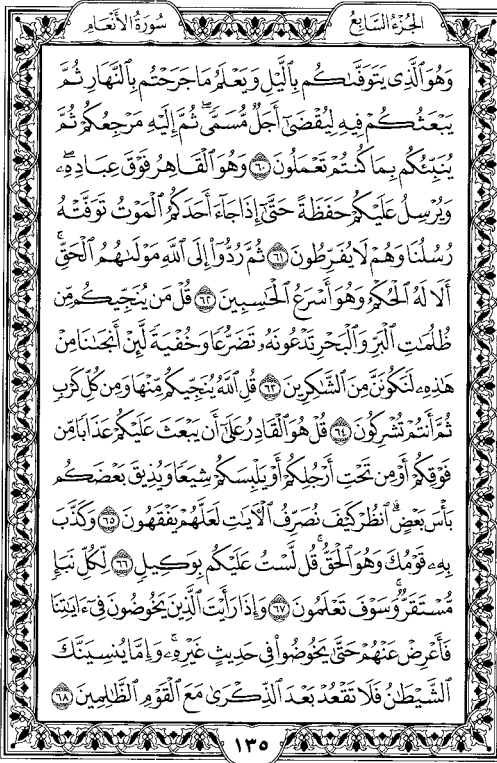 الجُزْءُ السَّابِعُ
سُورَةُ الأَنْعَامِ
وَهُوَ ٱلَّذِى يَتَوَفَّىٰكُم بِٱلَّيْلِ وَيَعْلَمُ مَا جَرَحْتُم بِٱلنَّهَارِ ثُمَّ
يَبْعَثُكُمْ فِيهِ لِيُقْضَىٰٓ أَجَلٌ مُّسَمًّى ۖ ثُمَّ إِلَيْهِ مَرْجِعُكُمْ ثُمَّ
يُنَبِّئُكُم بِمَا كُنتُمْ تَعْمَلُونَ ٦٠ وَهُوَ ٱلْقَاهِرُ فَوْقَ عِبَادِهِۦ ۖ
وَيُرْسِلُ عَلَيْكُمْ حَفَظَةً حَتَّىٰٓ إِذَا جَآءَ أَحَدَكُمُ ٱلْمَوْتُ تَوَفَّتْهُ
رُسُلُنَا وَهُمْ لَا يُفَرِّطُونَ ٦١ ثُمَّ رُدُّوٓا۟ إِلَى ٱللَّهِ مَوْلَىٰهُمُ ٱلْحَقِّ ۚ
أَلَا لَهُ ٱلْحُكْمُ وَهُوَ أَسْرَعُ ٱلْحَـٰسِبِينَ ٦٢ قُلْ مَن يُنَجِّيكُم مِّن
ظُلُمَـٰتِ ٱلْبَرِّ وَٱلْبَحْرِ تَدْعُونَهُۥ تَضَرُّعًا وَخُفْيَةً لَّئِنْ أَنجَىٰنَا مِنْ
هَـٰذِهِۦ لَنَكُونَنَّ مِنَ ٱلشَّـٰكِرِينَ ٦٣ قُلِ ٱللَّهُ يُنَجِّيكُم مِّنْهَا وَمِن كُلِّ كَرْبٍ
ثُمَّ أَنتُمْ تُشْرِكُونَ ٦٤ قُلْ هُوَ ٱلْقَادِرُ عَلَىٰٓ أَن يَبْعَثَ عَلَيْكُمْ عَذَابًا مِّن
فَوْقِكُمْ أَوْ مِن تَحْتِ أَرْجُلِكُمْ أَوْ يَلْبِسَكُمْ شِيَعًا وَيُذِيقَ بَعْضَكُم
بَأْسَ بَعْضٍ ۗ ٱنظُرْ كَيْفَ نُصَرِّفُ ٱلْـَٔايَـٰتِ لَعَلَّهُمْ يَفْقَهُونَ ٦٥ وَكَذَّبَ
بِهِۦ قَوْمُكَ وَهُوَ ٱلْحَقُّ ۚ قُل لَّسْتُ عَلَيْكُم بِوَكِيلٍ ٦٦ لِّكُلِّ نَبَإٍ
مُّسْتَقَرٌّ ۚ وَسَوْفَ تَعْلَمُونَ ٦٧ وَإِذَا رَأَيْتَ ٱلَّذِينَ يَخُوضُونَ فِىٓ ءَايَـٰتِنَا
فَأَعْرِضْ عَنْهُمْ حَتَّىٰ يَخُوضُوا۟ فِى حَدِيثٍ غَيْرِهِۦ ۚ وَإِمَّا يُنسِيَنَّكَ
ٱلشَّيْطَـٰنُ فَلَا تَقْعُدْ بَعْدَ ٱلذِّكْرَىٰ مَعَ ٱلْقَوْمِ ٱلظَّـٰلِمِينَ ٦٨
١٣٥